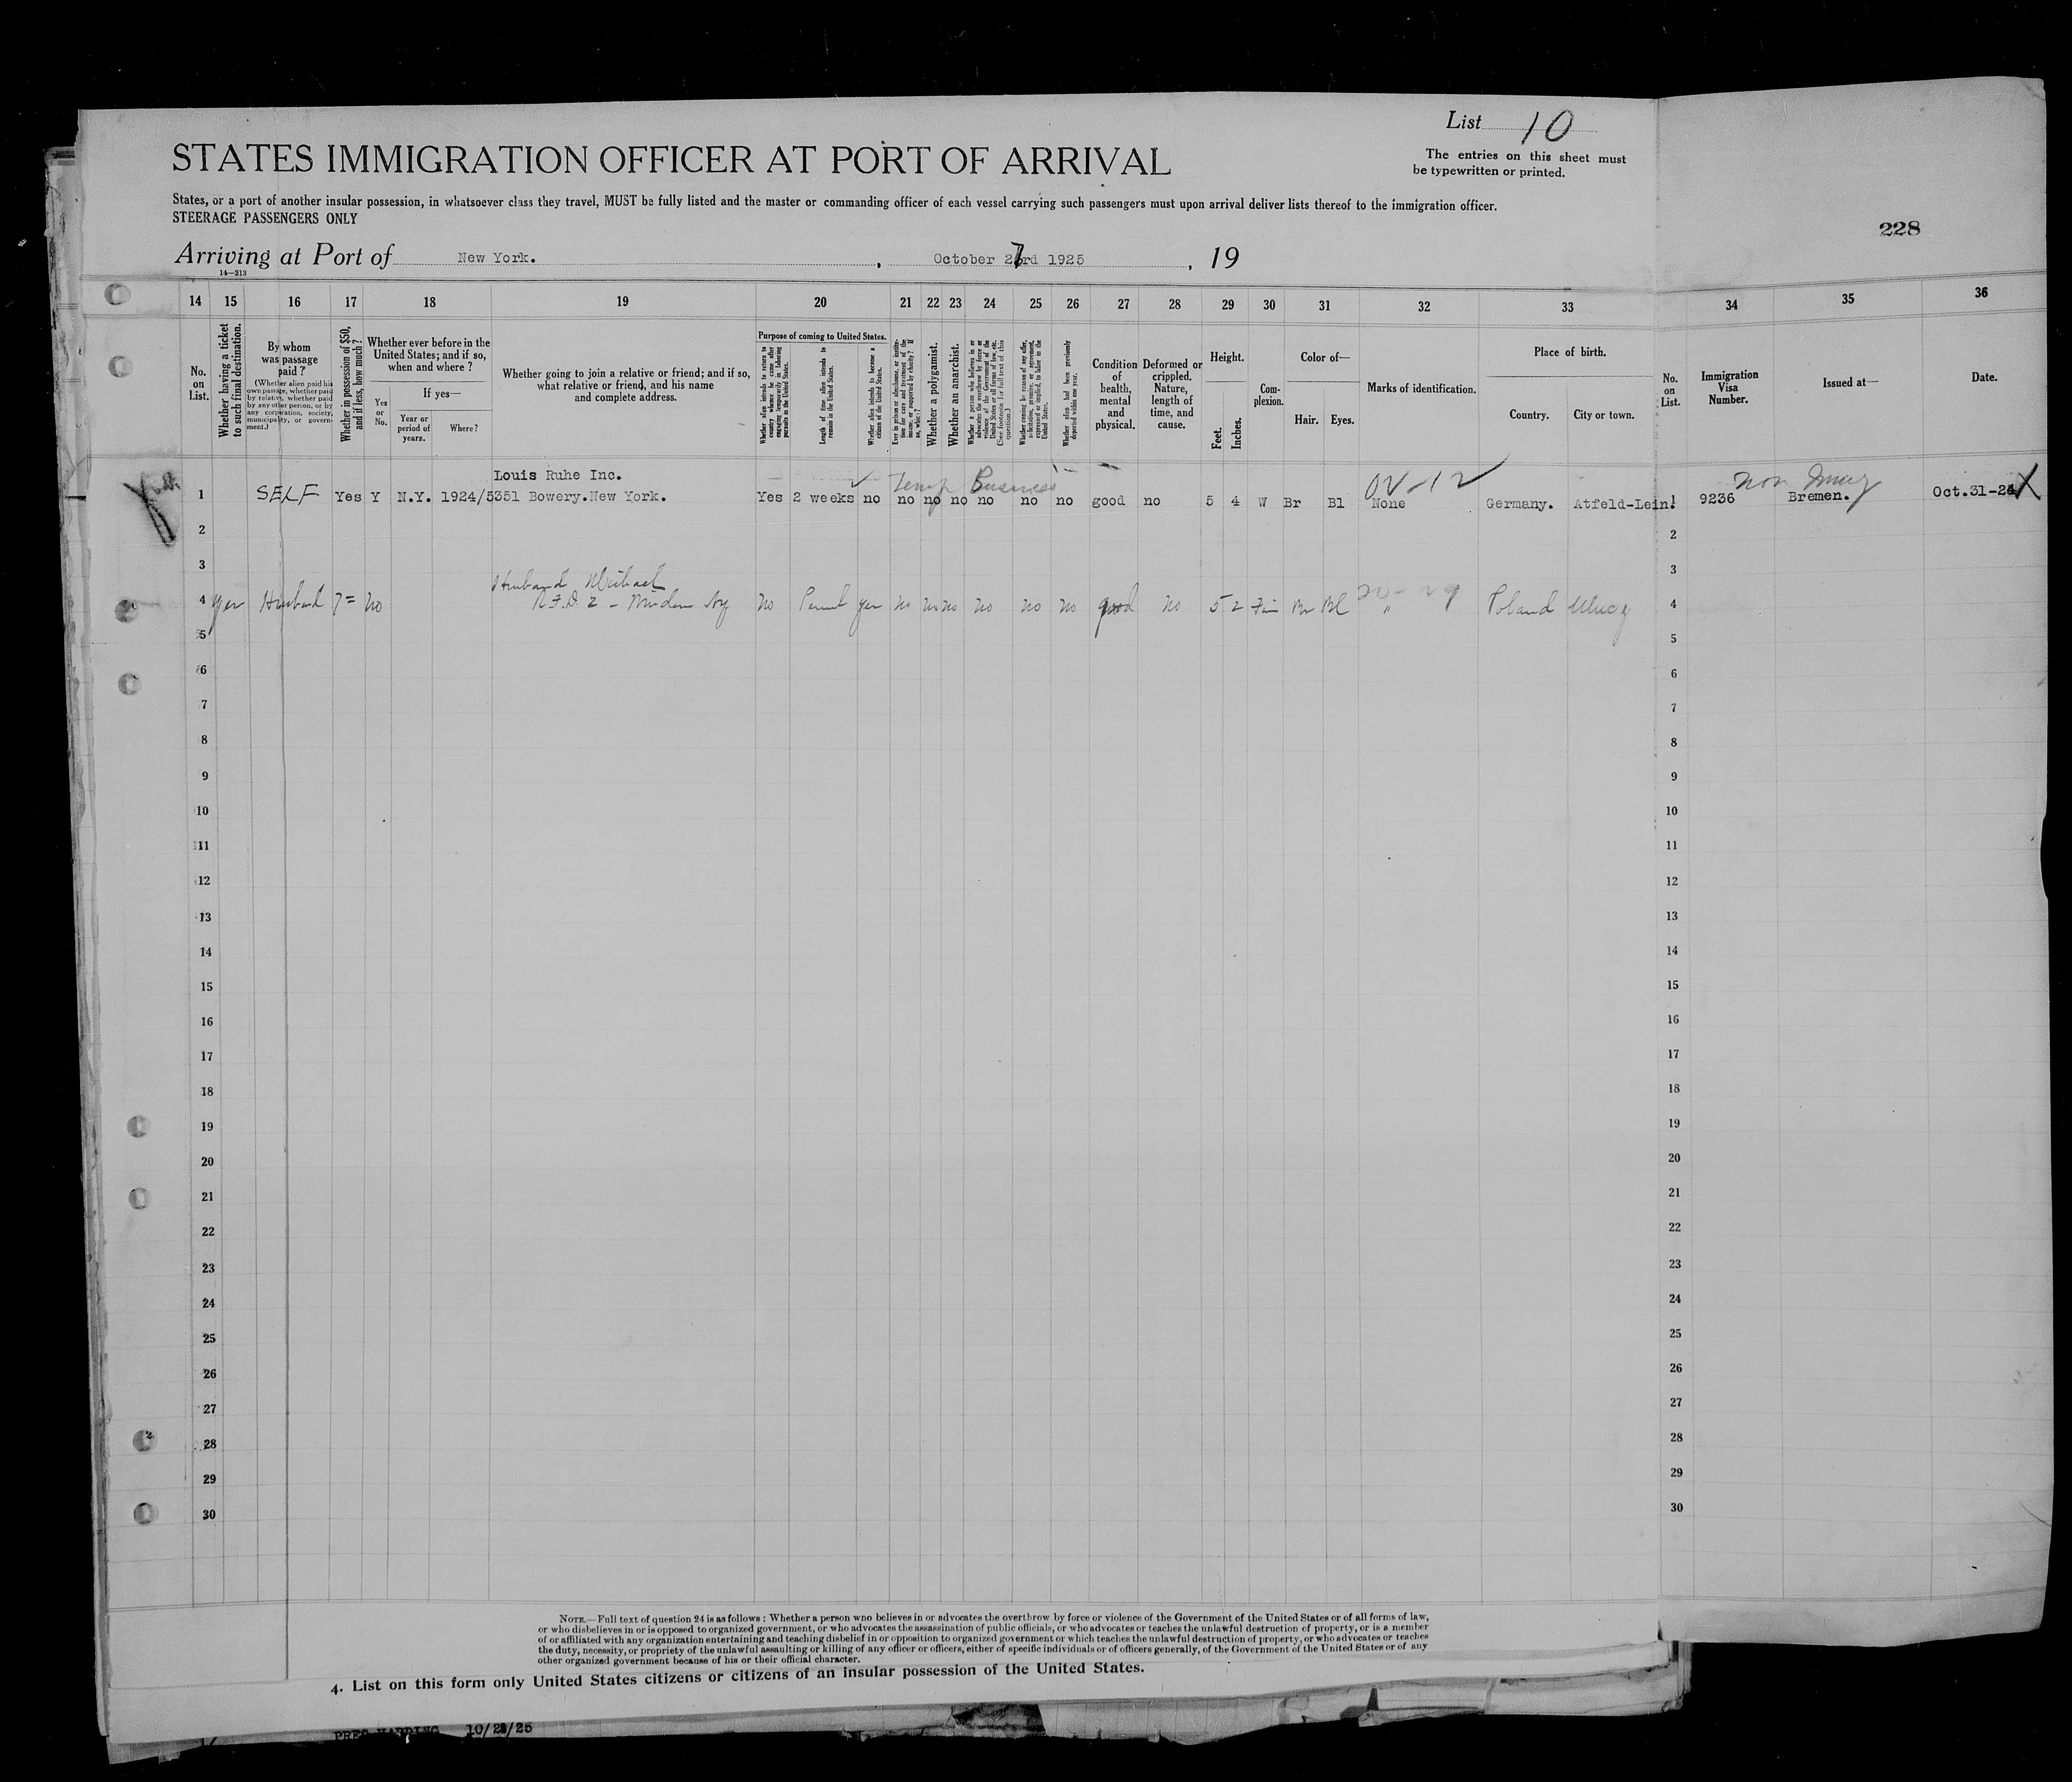 List 10
STATES IMMIGRATION OFFICER AT PORT OF ARRIVAL
The entries on this sheet must
be typewritten or printed.
States, or a port of another insular possession, in whatsoever class they travel, MUST be fully listed and the master or commanding officer of each vessel carrying such passengers must upon arrival deliver lists thereof to the immigration officer.
STEERAGE PASSENGERS ONLY
228
Arriving at Port of New York. , October 27rd 1925 , 19
14—213
14 15 16 17 18 19 20 21 22 23 24 25 26 27 28 29 30 31 32 33 34 35 36
No. on List.
Whether having a ticket to such final destination.
By whom was passage paid?
(Whether alien paid his own passage, whether paid by relative, whether paid by any other person, or by any corporation, society, municipality, or government.)
Whether in possession of $50, and if less, how much?
Whether ever before in the United States; and if so, when and where?
Yes or No.
If yes—
Year or period of years.
Where?
Whether going to join a relative or friend; and if so, what relative or friend, and his name and complete address.
Purpose of coming to United States.
Whether alien intends to return to country whence he came after engaging temporarily in laboring pursuits in the United States.
Length of time alien intends to remain in the United States.
Whether alien intends to become a citizen of the United States.
Ever in prison or almshouse, or institution for care and treatment of the insane, or supported by charity? If so, which?
Whether a polygamist.
Whether an anarchist.
Whether a person who believes in or advocates the overthrow by force or violence of the Government of the United States or all forms of law, etc. (See footnote for full text of this question.)
Whether coming by reason of any offer, solicitation, promise, or agreement, expressed or implied, to labor in the United States.
Whether alien had been previously deported within one year.
Condition of health, mental and physical.
Deformed or crippled. Nature, length of time, and cause.
Height.
Feet.
Inches.
Complexion.
Color of—
Hair. Eyes.
Marks of identification.
Place of birth.
Country. City or town.
No. on List.
Immigration Visa Number.
Issued at—
Date.
Louis Ruhe Inc. Temp Business OV-12 non Immig
1 SELF Yes Y N.Y. 1924/5 351 Bowery.New York. Yes 2 weeks no no no no no no no good no 5 4 W Br Bl None Germany. Atfeld-Lein. 1 9236 Bremen. Oct.31-24 X
2 2
3 3
Husband Michael
4 yes Husband 7= no R.F.D. 2 - Minden Ny no yes no no no no no no good no 5 2 Br Bl " Poland 4
5 5
6 6
7 7
8 8
9 9
10 10
11 11
12 12
13 13
14 14
15 15
16 16
17 17
18 18
19 19
20 20
21 21
22 22
23 23
24 24
25 25
26 26
27 27
28 28
29 29
30 30
NOTE.—Full text of question 24 is as follows: Whether a person who believes in or advocates the overthrow by force or violence of the Government of the United States or of all forms of law,
or who disbelieves in or is opposed to organized government, or who advocates the assassination of public officials, or who advocates or teaches the unlawful destruction of property, or is a member
of or affiliated with any organization entertaining and teaching disbelief in or opposition to organized government or which teaches the unlawful destruction of property, or who advocates or teaches
the duty, necessity, or propriety of the unlawful assaulting or killing of any officer or officers, either of specific individuals or of officers generally, of the Government of the United States or of any
other organized government because of his or their official character.
4. List on this form only United States citizens or citizens of an insular possession of the United States.
PRES HARDING 10/23/25